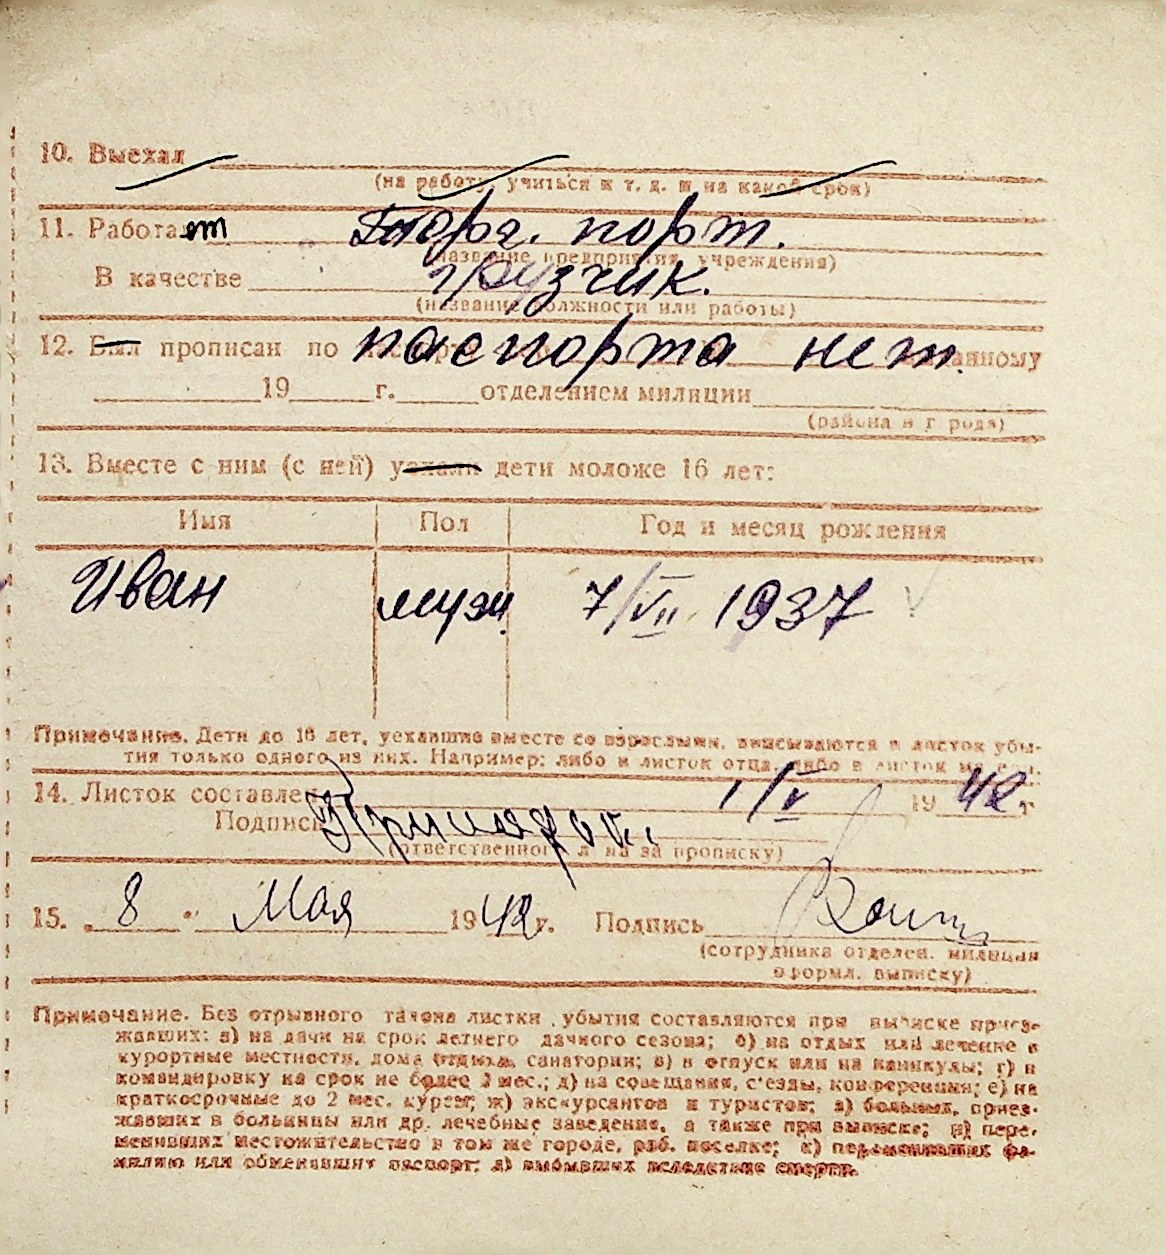 10. Выехал
(на работу, учиться и т. д. и на какой срок)
11. Работает Торг. порт.
(название предприятия, учреждения)
В качестве грузчик.
(название должности или работы)
12. Был прописан по паспорта нет. данному
19 г. отделением милиции
(района и города)
13. Вместе с ним (с ней) уехали дети моложе 16 лет:
Имя Пол Год и месяц рождения
Иван муж. 7/VII 1937
Примечание. Дети до 16 лет, уехавшие вместе со взрослыми, вписываются в листок убы-
тия только одного из них. Например: либо в листок отца, либо в листок
14. Листок составлен 1/V 1942 г
Подпись
(ответственного л на за прописку)
15. „8" Мая 1942 г. Подпись
(сотрудника отделен. милиции
оформл. выписку)
Примечание. Без отрывного талона листки убытия составляются при выписке приез-
жавших: а) на дачи на срок летнего дачного сезона; б) на отдых или лечение в
курортные местности, дома отдыха, санатории; в) в отпуск или на каникулы; г) в
командировку на срок не более 2 мес.; д) на совещания, с'езды, конференции; е) на
краткосрочные до 2 мес. курсы; ж) экскурсантов и туристов; з) больных, приез-
жавших в больницы или др. лечебные заведение, а также при выписке; и) пере-
менивших местожительство в том же городе, раб. поселке; к) переменивших фа-
милию или обменявших паспорт; л) выбывших вследствие смерти.